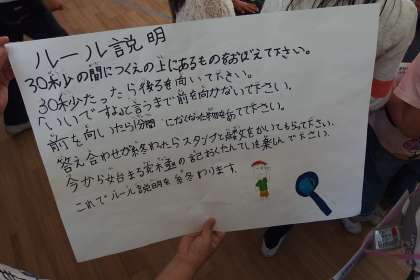 ルール説明
30秒の間につくえの上にあるものをおぼえて下さい。
30秒たったら後ろを向いて下さい。
「いいですよ」と言うまで前を向かないで下さい。
前を向いたら1分間 になくなった物を当て下さい。
答え合わせが終わったらスタンプと 文をかいてもらって下さい。
今から始まる の記おくたんていを楽しんで下さい。
これでルール説明を終わります。